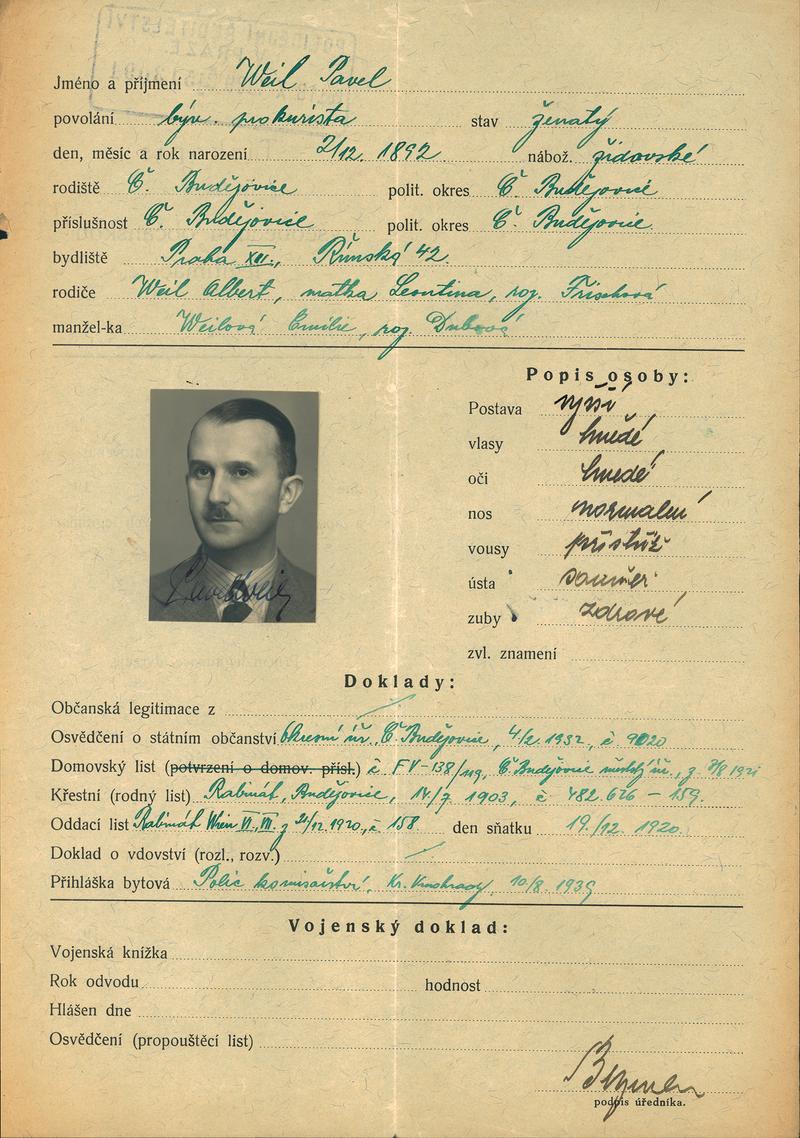 Jméno a příjmení Weil Pavel
povolání býv. prokurista stav ženatý
den, měsíc a rok narození 2/12. 1892 nábož. židovské
rodiště Č. Budějovice polit. okres Č. Budějovice
příslušnost Č. Budějovice polit. okres Č. Budějovice
bydliště Praha XII., Římská 42.
rodiče Weil Albert, matka Leontina, roz. Frischová
manžel-ka Weilová Emilie, roz. Dubová
Popis osoby:
Postava vyšší
vlasy hnědé
oči hnedé
nos normalní
vousy přistřiž
ústa souměr
zuby zdravé
zvl. znamení
Pavel Weil
Doklady:
Občanská legitimace z
Osvědčení o státním občanství Okresní úř., Č. Budějovice, 4/2. 1932, č 9020
Domovský list (potvrzení o domov. přísl.) č FV-138/ Č. Budějovice městský úř., z
Křestní (rodný list) Rabinát, Budějovice, 14/7 1903, č 482.626 - 159.
Oddací list Rabinát Wien VI., VII. z 21/12. 1920, č 158. den sňatku 19./12. 1920.
Doklad o vdovství (rozl., rozv.)
Přihláška bytová Polic komisařství, Kr. Vinohrady, 10/8. 1939
Vojenský doklad:
Vojenská knížka
Rok odvodu hodnost
Hlášen dne
Osvědčení (propouštěcí list)
podpis úředníka.